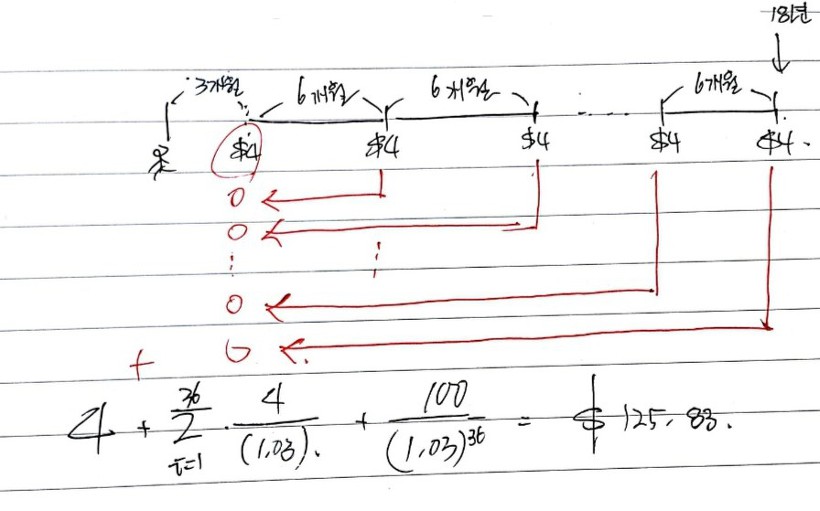 18년
3개월 6개월 6개월 6개월
$4 $4 $4 $4 $4.
0
0
0
+ 0
4 + 36 Σ i=1 4/(1.03). + 100/(1.03)^36 = $125.83.